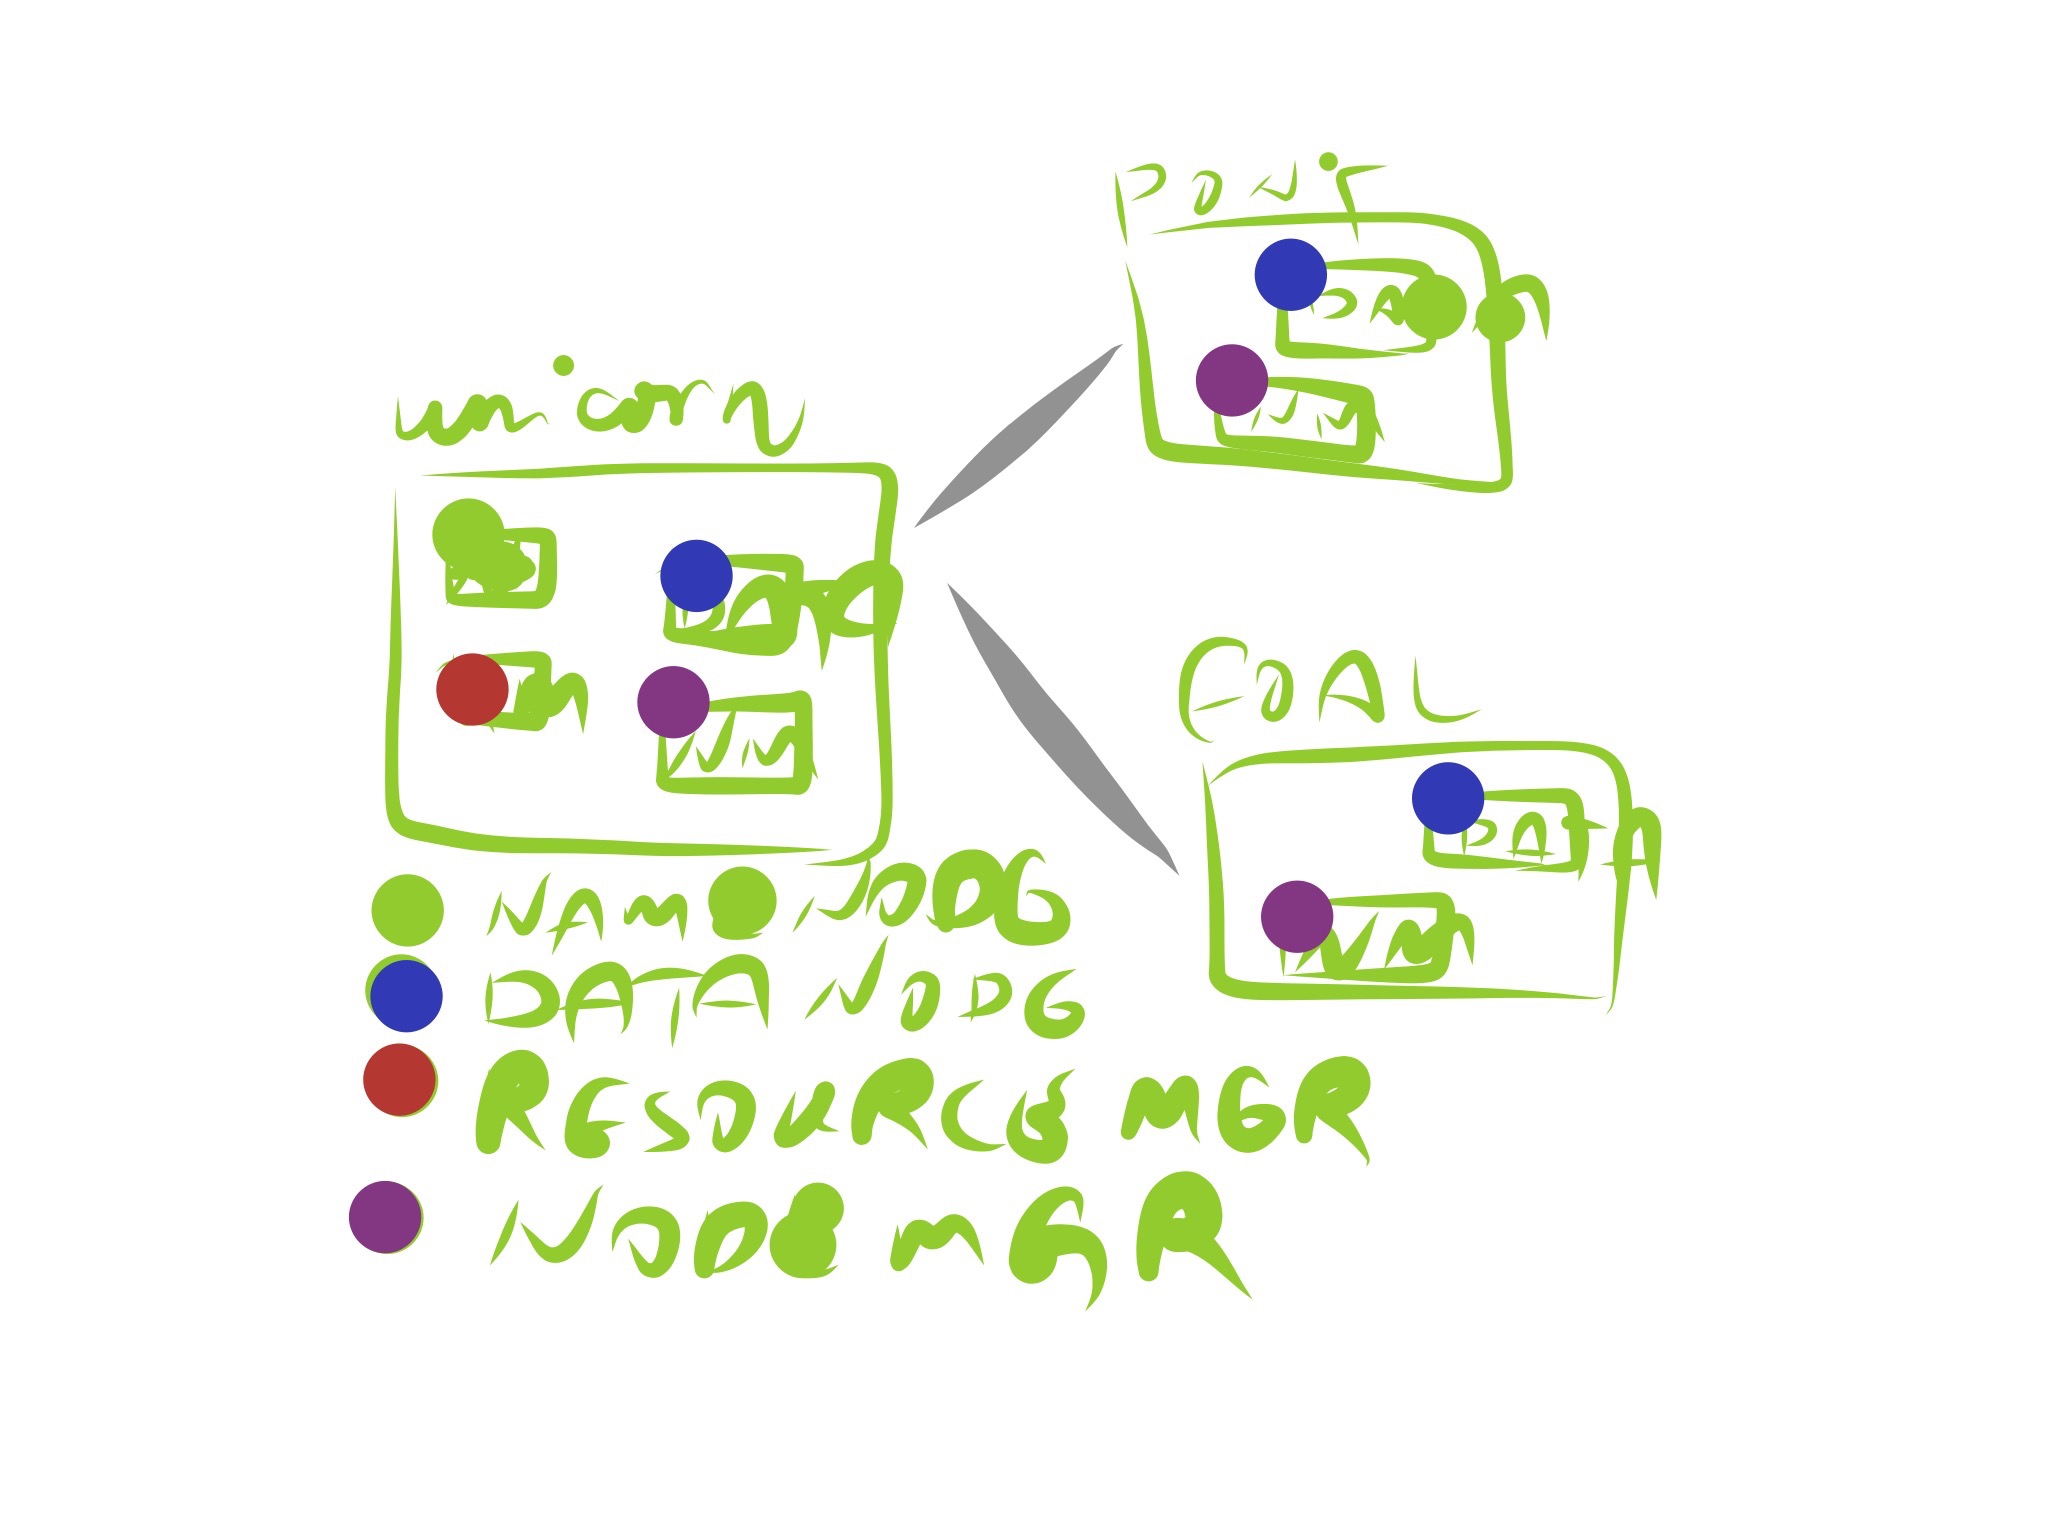 PONY
unicorn
DATA
NM
DATA
RM
NM
FOAL
DATA
NM
NAME NODE
DATA NODE
RESOURCE MGR
NODE MGR